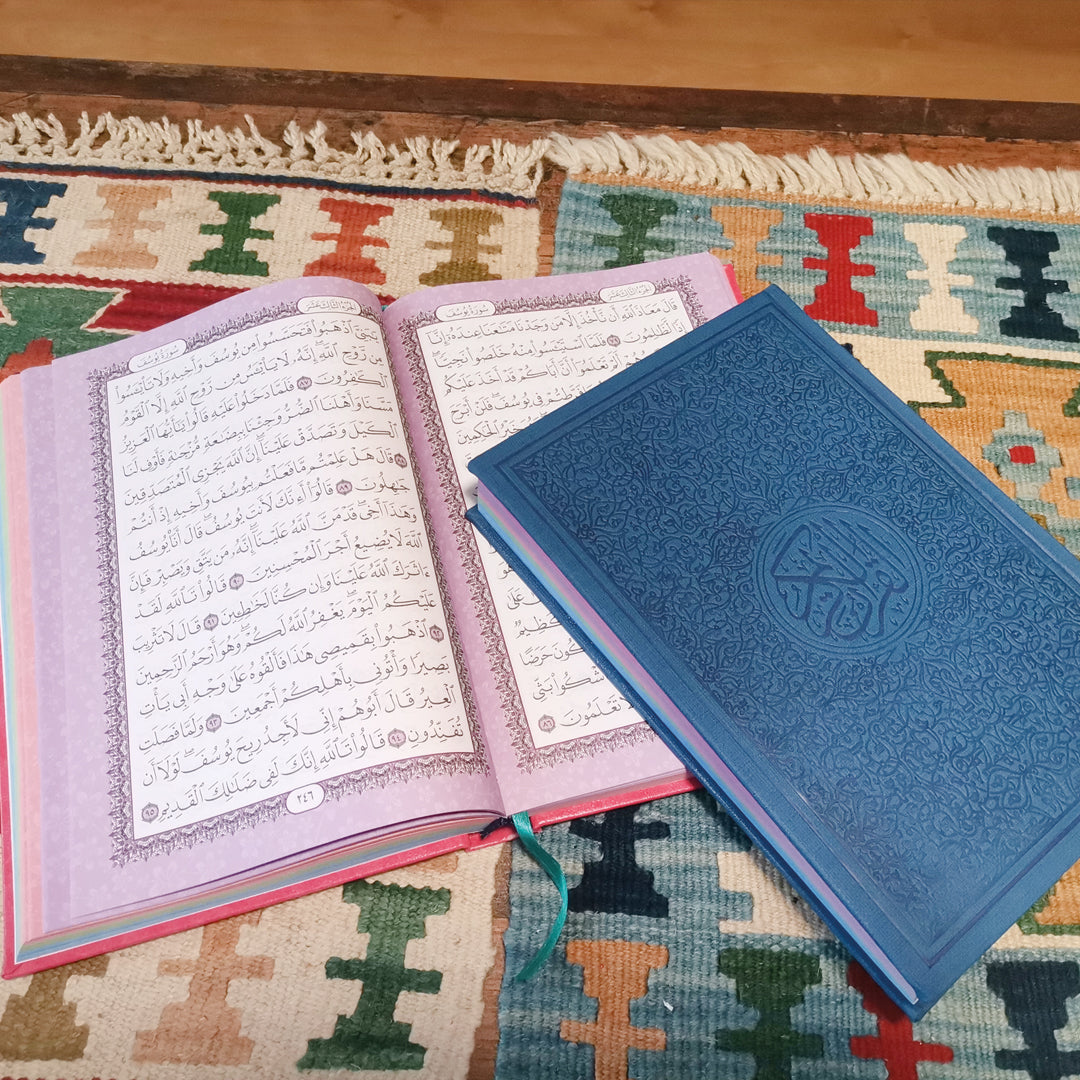 الجزء الثالث عشر
سورة يوسف
قَالَ مَعَاذَ ٱللَّهِ أَن نَّأْخُذَ إِلَّا مَن وَجَدْنَا مَتَٰعَنَا عِندَهُۥٓ إِنَّآ
إِذًا لَّظَٰلِمُونَ ٧٩ فَلَمَّا ٱسْتَيْـَٔسُوا۟ مِنْهُ خَلَصُوا۟ نَجِيًّا
أَلَمْ تَعْلَمُوٓا۟ أَنَّ أَبَاكُمْ قَدْ أَخَذَ عَلَيْكُم
فِى يُوسُفَ ۖ فَلَنْ أَبْرَحَ
ٱلْحَٰكِمِينَ
عَلَى
كَظِيمٌ
حَرَضًا
بَثِّى
تَعْلَمُونَ ٨٦
الجزء الثالث عشر
سورة يوسف
يَٰبَنِىَّ ٱذْهَبُوا۟ فَتَحَسَّسُوا۟ مِن يُوسُفَ وَأَخِيهِ وَلَا تَا۟يْـَٔسُوا۟
مِن رَّوْحِ ٱللَّهِ ۖ إِنَّهُۥ لَا يَا۟يْـَٔسُ مِن رَّوْحِ ٱللَّهِ إِلَّا ٱلْقَوْمُ
ٱلْكَٰفِرُونَ ٨٧ فَلَمَّا دَخَلُوا۟ عَلَيْهِ قَالُوا۟ يَٰٓأَيُّهَا ٱلْعَزِيزُ
مَسَّنَا وَأَهْلَنَا ٱلضُّرُّ وَجِئْنَا بِبِضَٰعَةٍ مُّزْجَىٰةٍ فَأَوْفِ لَنَا
ٱلْكَيْلَ وَتَصَدَّقْ عَلَيْنَآ ۖ إِنَّ ٱللَّهَ يَجْزِى ٱلْمُتَصَدِّقِينَ
٨٨ قَالَ هَلْ عَلِمْتُم مَّا فَعَلْتُم بِيُوسُفَ وَأَخِيهِ إِذْ أَنتُمْ
جَٰهِلُونَ ٨٩ قَالُوٓا۟ أَءِنَّكَ لَأَنتَ يُوسُفُ ۖ قَالَ أَنَا۠ يُوسُفُ
وَهَٰذَآ أَخِى ۖ قَدْ مَنَّ ٱللَّهُ عَلَيْنَآ ۖ إِنَّهُۥ مَن يَتَّقِ وَيَصْبِرْ فَإِنَّ
ٱللَّهَ لَا يُضِيعُ أَجْرَ ٱلْمُحْسِنِينَ ٩٠ قَالُوا۟ تَٱللَّهِ لَقَدْ
ءَاثَرَكَ ٱللَّهُ عَلَيْنَا وَإِن كُنَّا لَخَٰطِـِٔينَ ٩١ قَالَ لَا تَثْرِيبَ
عَلَيْكُمُ ٱلْيَوْمَ ۖ يَغْفِرُ ٱللَّهُ لَكُمْ ۖ وَهُوَ أَرْحَمُ ٱلرَّٰحِمِينَ
٩٢ ٱذْهَبُوا۟ بِقَمِيصِى هَٰذَا فَأَلْقُوهُ عَلَىٰ وَجْهِ أَبِى يَأْتِ
بَصِيرًا وَأْتُونِى بِأَهْلِكُمْ أَجْمَعِينَ ٩٣ وَلَمَّا فَصَلَتِ
ٱلْعِيرُ قَالَ أَبُوهُمْ إِنِّى لَأَجِدُ رِيحَ يُوسُفَ ۖ لَوْلَآ أَن
تُفَنِّدُونِ ٩٤ قَالُوا۟ تَٱللَّهِ إِنَّكَ لَفِى ضَلَٰلِكَ ٱلْقَدِيمِ ٩٥
٢٤٦